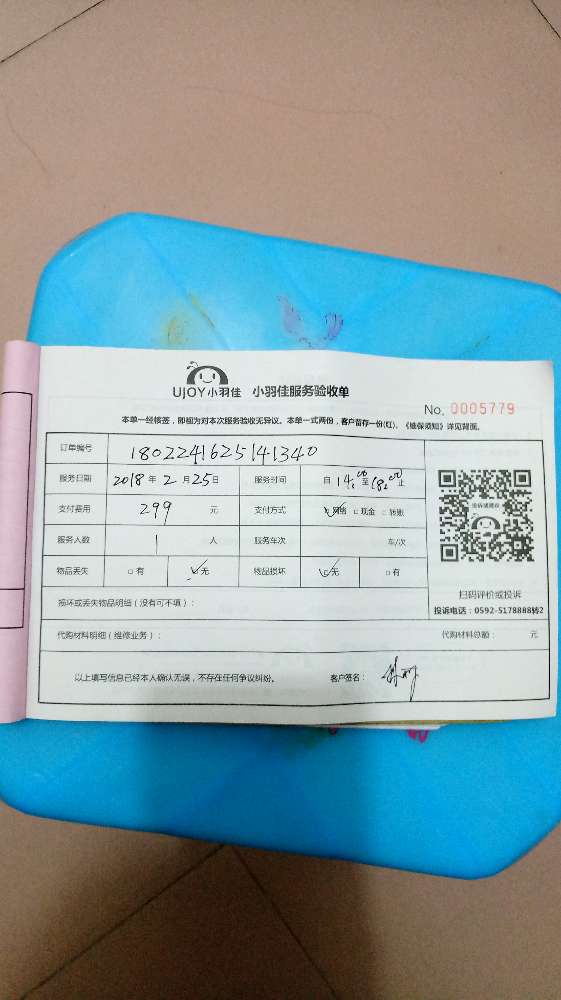 UJOY小羽佳 小羽佳服务验收单
No. 0005779
本单一经核签，即视为对本次服务验收无异议。本单一式两份，客户留存一份(红)。《维保须知》详见背面。
订单编号 1802241625141340
服务日期 2018 年 2 月 25 日 服务时间 自 14:00 至 18:00 止
支付费用 299 元 支付方式 ☑网络 □现金 □转账
服务人数 1 人 服务车次 车/次
物品丢失 □有 ☑无 物品损坏 ☑无 □有
扫码评价或投诉
投诉电话：0592-5178888转2
损坏或丢失物品明细（没有可不填）：
代购材料明细（维修业务）： 代购材料总额： 元
以上填写信息已经本人确认无误，不存在任何争议纠纷。 客户签名：